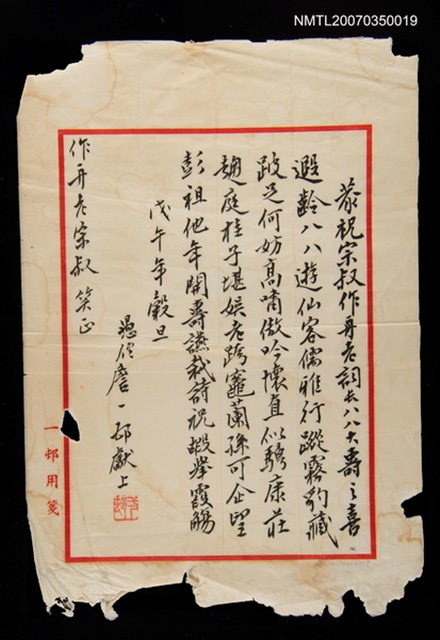 NMTL20070350019
恭祝宗叔作舟老詞長八八大壽之喜
遐齡八八遊仙客儒雅行蹤霧豹藏
跛足何妨高嘯傲吟懷直似騁康莊
趨庭桂子堪娛老跨竈蘭孫可企望
彭祖他年開壽讌栽詩祝嘏舉霞觴
戊午年穀旦
愚侄詹一邨獻上
作舟老宗叔 笑正
一邨用箋